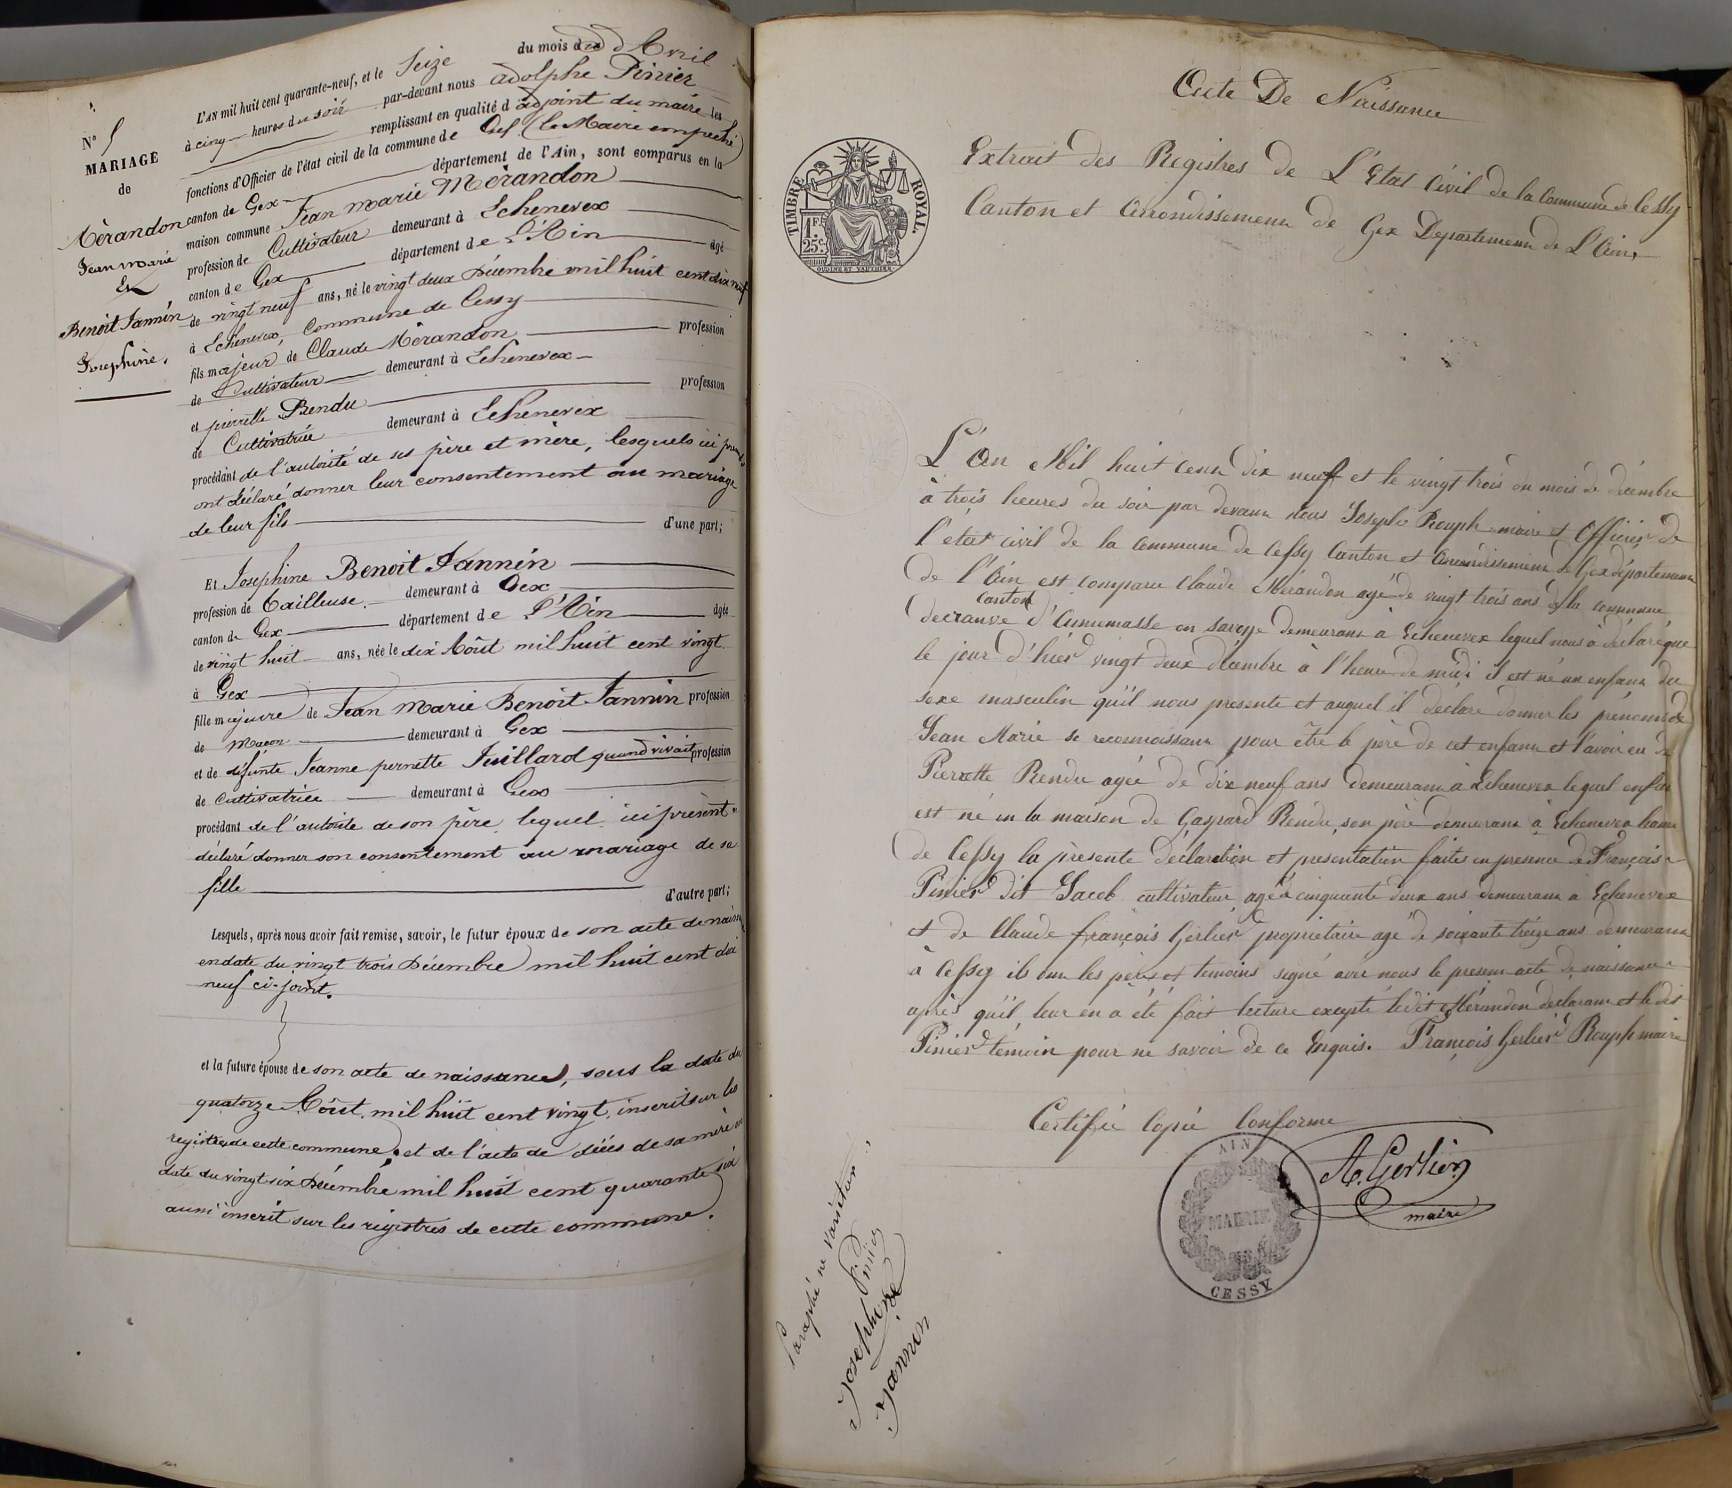 N° 5
MARIAGE
de
Mérandon
Jean marie
Et
Benoit Jannin
Josephine.
L'AN mil huit cent quarante-neuf, et le Seize du mois d'Avril
à cinq heures du soir par-devant nous adolphe Pinier
remplissant en qualité d'adjoint du maire les
fonctions d'Officier de l'état civil de la commune de Gex (le Maire empeché)
canton de Gex département de l'Ain, sont comparus en la
maison commune Jean marie Mérandon
profession de Cultivateur demeurant à Echenevex
canton de Gex département de L'Ain âgé
de vingt neuf ans, né le vingt deux Décembre mil huit cent dix neuf
à Echenevex, Commune de Cessy
fils majeur de Claude Mérandon profession
de Cultivateur demeurant à Echenevex
et pierrette Rendu profession
de Cultivatrice demeurant à Echenevex
procédant de l'autorité de ses père et mère, lesquels ici présents
ont déclaré donner leur consentement au mariage
de leur fils d'une part;
Et Josephine Benoit Jannin
profession de tailleuse demeurant à Gex
canton de Gex département de L'Ain âgée
de vingt huit ans, née le dix Aôut mil huit cent vingt
à Gex
fille majeure de Jean Marie Benoit Jannin profession
de Macon demeurant à Gex
et de défunte Jeanne pernette Juillard quand vivait profession
de Cultivatrice demeurant à Gex
procédant de l'autorité de son père lequel ici présent a
déclaré donner son consentement au mariage de sa
fille d'autre part;
Lesquels, après nous avoir fait remise, savoir, le futur époux de son acte de naissance
en date du vingt trois Décembre mil huit cent dix
neuf ci-joint.
et la future épouse de son acte de naissance, sous la date du
quatorze Aôut mil huit cent vingt inscrit sur les
registres de cette commune, et de l'acte de décès de sa mère en
date du vingt six Décembre mil huit cent quarante six
aussi inscrit sur les registres de cette commune.
Acte De Naissance
TIMBRE ROYAL.
1 FR
25 c.
Extrait des Registres de L'Etat Civil de la Commune de Cessy
Canton et Arrondissement de Gex Departement de L'Ain,
L'An Mil huit cent dix neuf et le vingt trois du mois de décembre
à trois heures du soir par devant Nous Joseph Rouph maire et Officier de
l'etat civil de la Commune de Cessy Canton et Arrondissement de Gex département
de l'Ain est comparu Claude Mérandon agé de vingt trois ans de la commune
Canton
de cranve d'Annemasse en Savoye demeurant à Echenevex lequel nous a déclaré que
le jour d'hier vingt deux décembre à l'heure de midi il est né un enfant du
sexe masculin qu'il nous presente et auquel il declare donner les prénoms de
Jean Marie se reconnaissant pour être le père de cet enfant et l'avoir eu de
Pierrette Rendu agée de dix neuf ans demeurant à Echenevex lequel enfant
est né en la maison de Gaspard Rendu, son père demeurant à Echenevex hameau
de Cessy la présente déclaration et presentation faites en presence de François
Pinier dit Jacob cultivateur agé cinquante deux ans demeurant à Echenevex
et de Claude françois Gerlier propriétaire agé de soixante treize ans demeurant
à Cessy ils ont les père et temoins signé avec nous le present acte de naissance
après qu'il leur en a été fait lecture excepté ledit Mérandon declarant et ledit
Pinier témoin pour ne savoir de ce Enquis. François Gerlier Rouph maire
Certifié Copie Conforme
A. Gerlier
maire
AIN
MAIRIE
CESSY
Paraphé ne varietur
Pinier
Josephine
Jannin